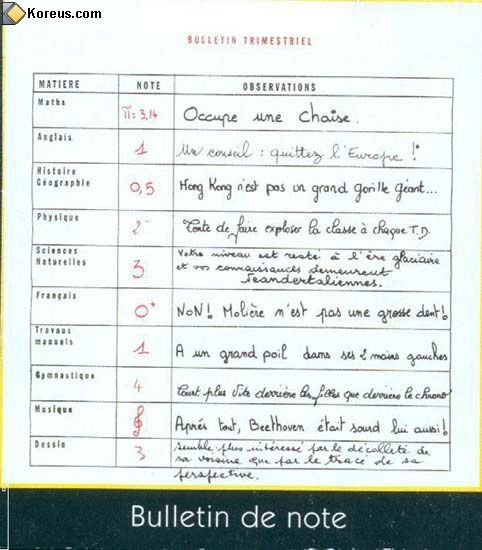 Koreus.com
BULLETIN TRIMESTRIEL
MATIERE NOTE OBSERVATIONS
Maths π = 3,14 Occupe une chaise.
Anglais 1 Un conseil : quittez l'Europe !
Histoire
Géographie 0,5 Hong Kong n'est pas un grand gorille géant...
Physique 2- Tente de faire exploser la classe à chaque T.D.
Sciences
Naturelles 3 Votre niveau est resté à l'ère glaciaire
et vos connaissances demeurent
Neandertaliennes.
Français 0+ NON! Molière n'est pas une grosse dent!
Travaux
manuels 1 A un grand poil dans ses 2 mains gauches
Gymnastique 4 Court plus vite derrière les filles que derrière le chrono
Musique Après tout, Beethoven était sourd lui aussi!
Dessin 3 Semble plus intéressé par le décolleté de
sa voisine que par le tracé de sa
perspective.
Bulletin de note